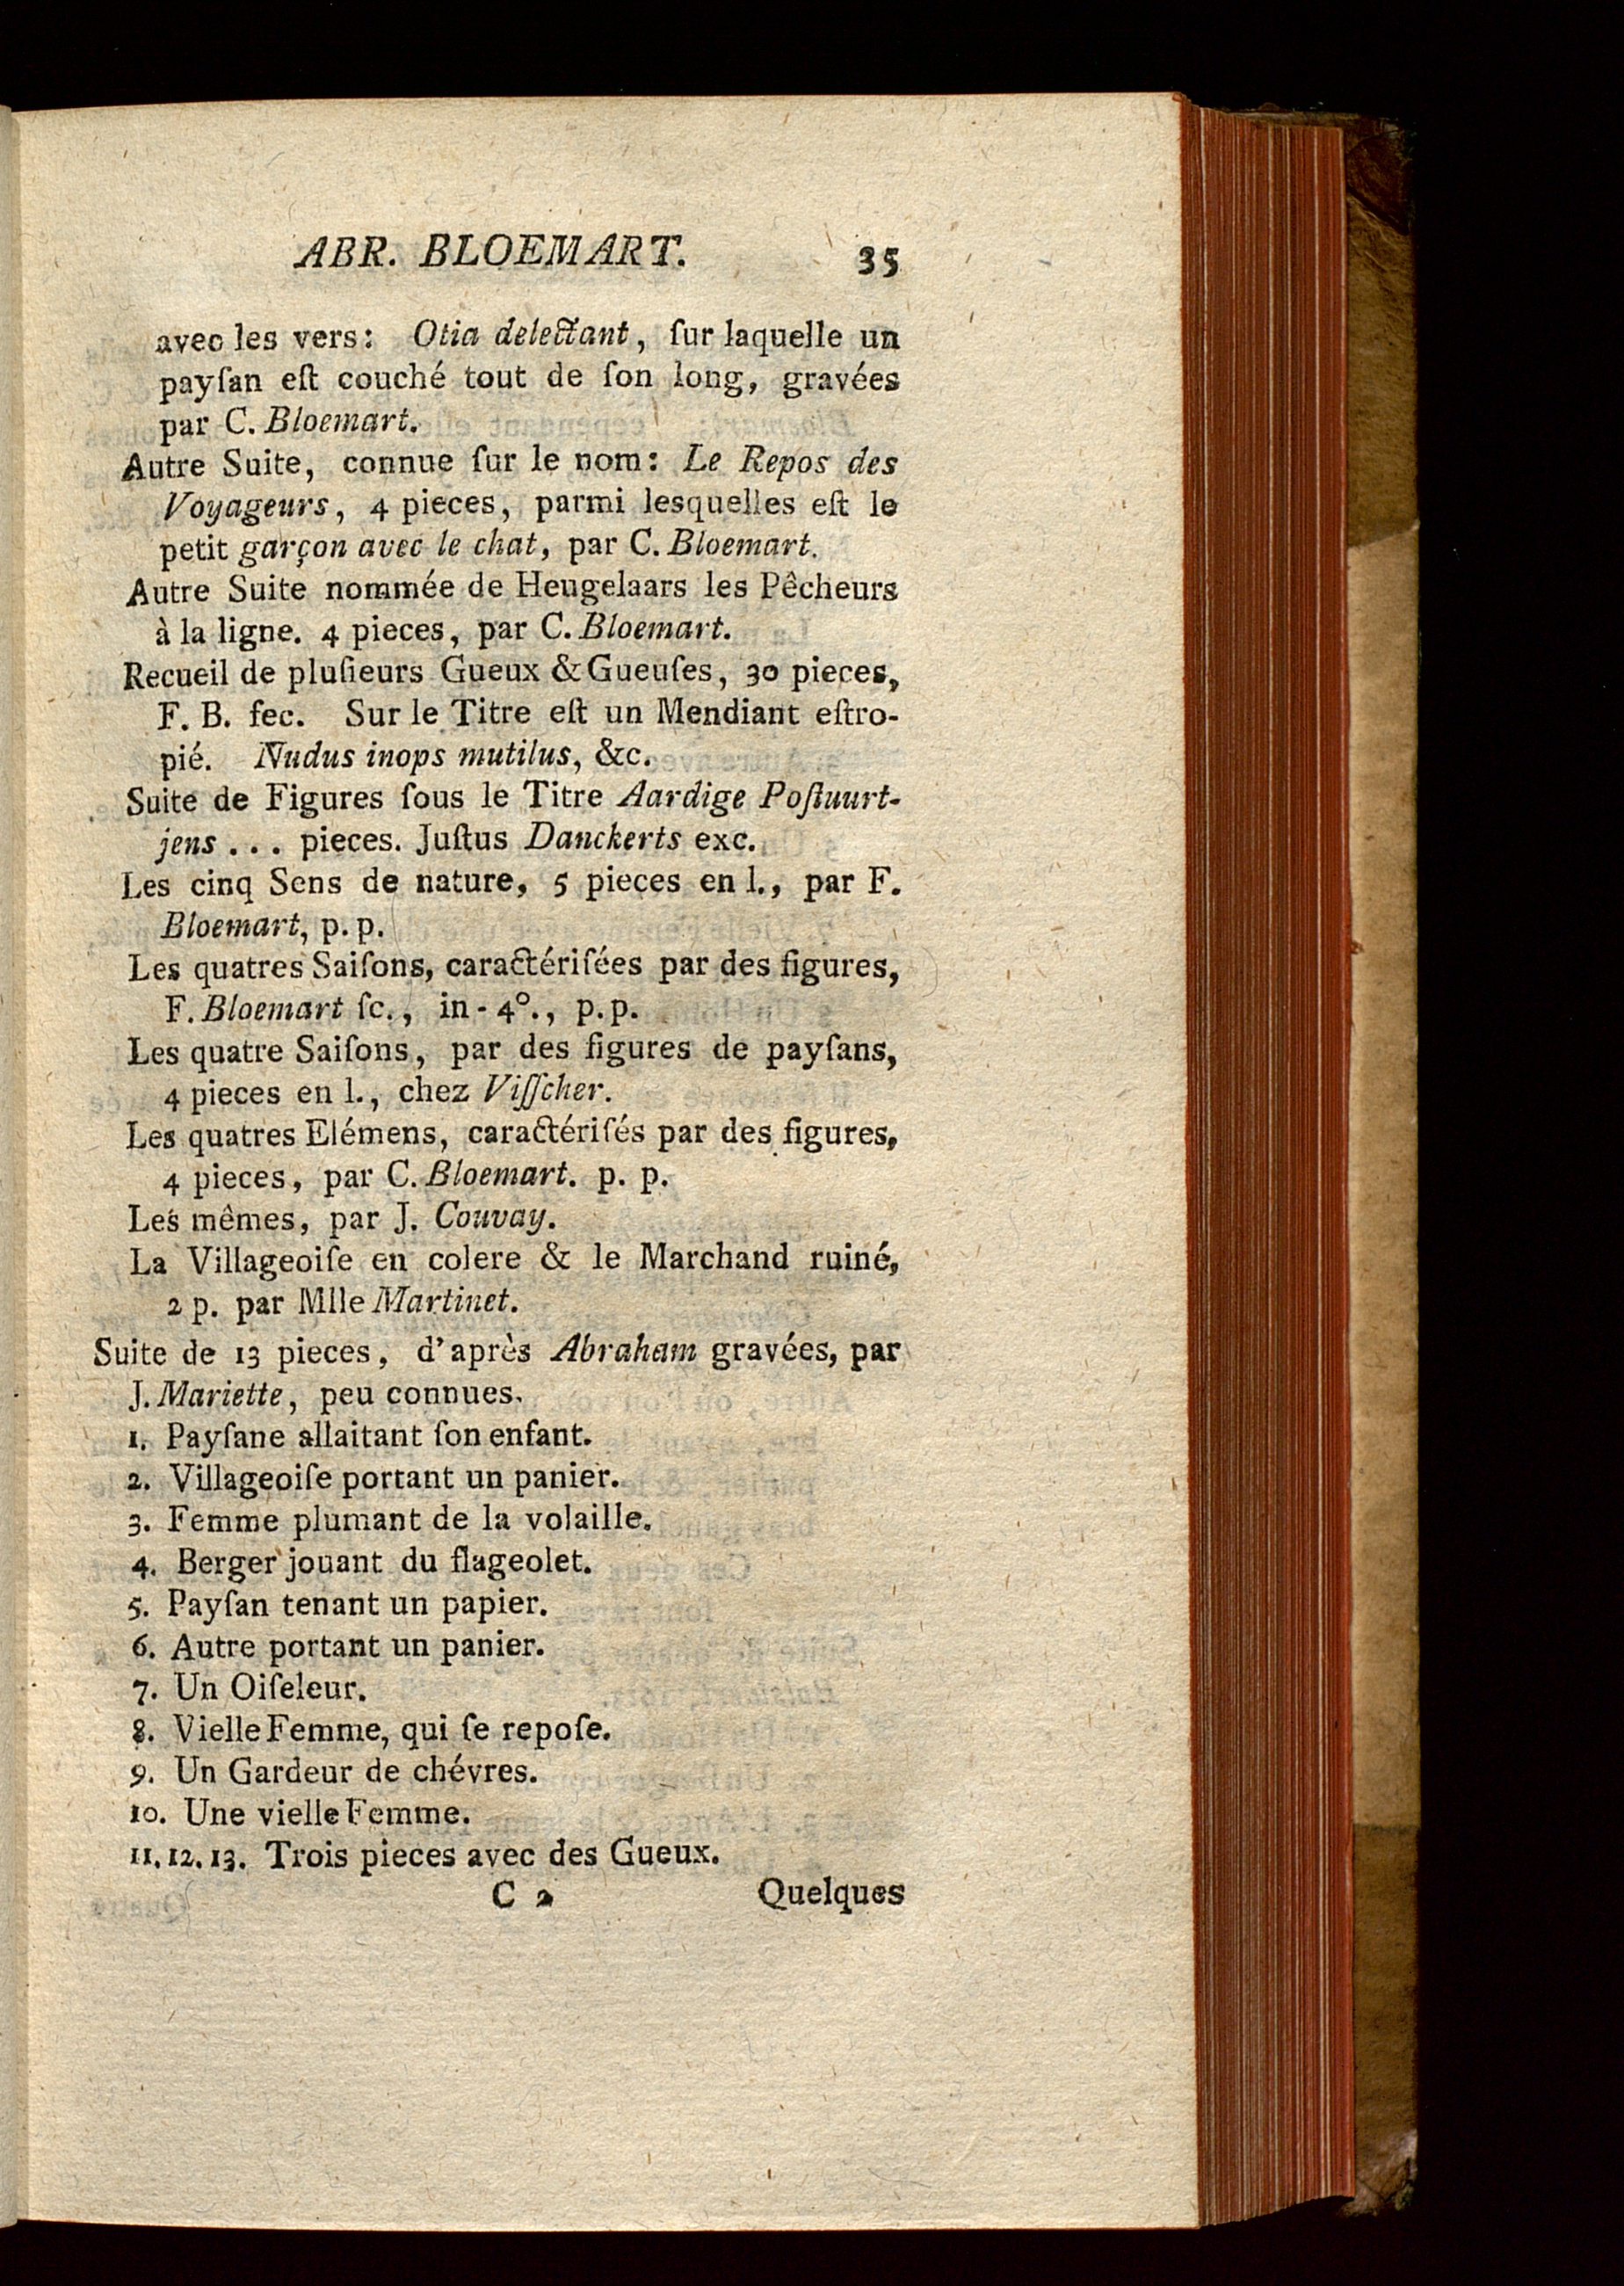 ABR. BLOEMART. 35
avec les vers: Otia delectant, ſur laquelle un
payſan eſt couché tout de ſon long, gravées
par C. Bloemart.
Autre Suite, connue ſur le nom: Le Repos des
Voyageurs, 4 pieces, parmi lesquelles eſt le
petit garçon avec le chat, par C. Bloemart.
Autre Suite nommée de Heugelaars les Pêcheurs
à la ligne. 4 pieces, par C. Bloemart.
Recueil de pluſieurs Gueux & Gueuſes, 30 pieces,
F. B. fec. Sur le Titre eſt un Mendiant eſtro-
pié. Nudus inops mutilus, &c.
Suite de Figures ſous le Titre Aardige Poſtuurt-
jens ... pieces. Juſtus Danckerts exc.
Les cinq Sens de nature, 5 pieces en l., par F.
Bloemart, p. p.
Les quatres Saiſons, caractériſées par des figures,
F. Bloemart ſc., in-4°., p. p.
Les quatre Saiſons, par des figures de payſans,
4 pieces en l., chez Viſſcher.
Les quatres Elémens, caractériſés par des figures,
4 pieces, par C. Bloemart. p. p.
Les mêmes, par J. Couvay.
La Villageoiſe en colere & le Marchand ruiné,
2 p. par Mlle Martinet.
Suite de 13 pieces, d'après Abraham gravées, par
J. Mariette, peu connues.
1. Payſane allaitant ſon enfant.
2. Villageoiſe portant un panier.
3. Femme plumant de la volaille.
4. Berger jouant du flageolet.
5. Payſan tenant un papier.
6. Autre portant un panier.
7. Un Oiſeleur.
8. Vielle Femme, qui ſe repoſe.
9. Un Gardeur de chévres.
10. Une vielle Femme.
11. 12. 13. Trois pieces avec des Gueux.
C 2 Quelques